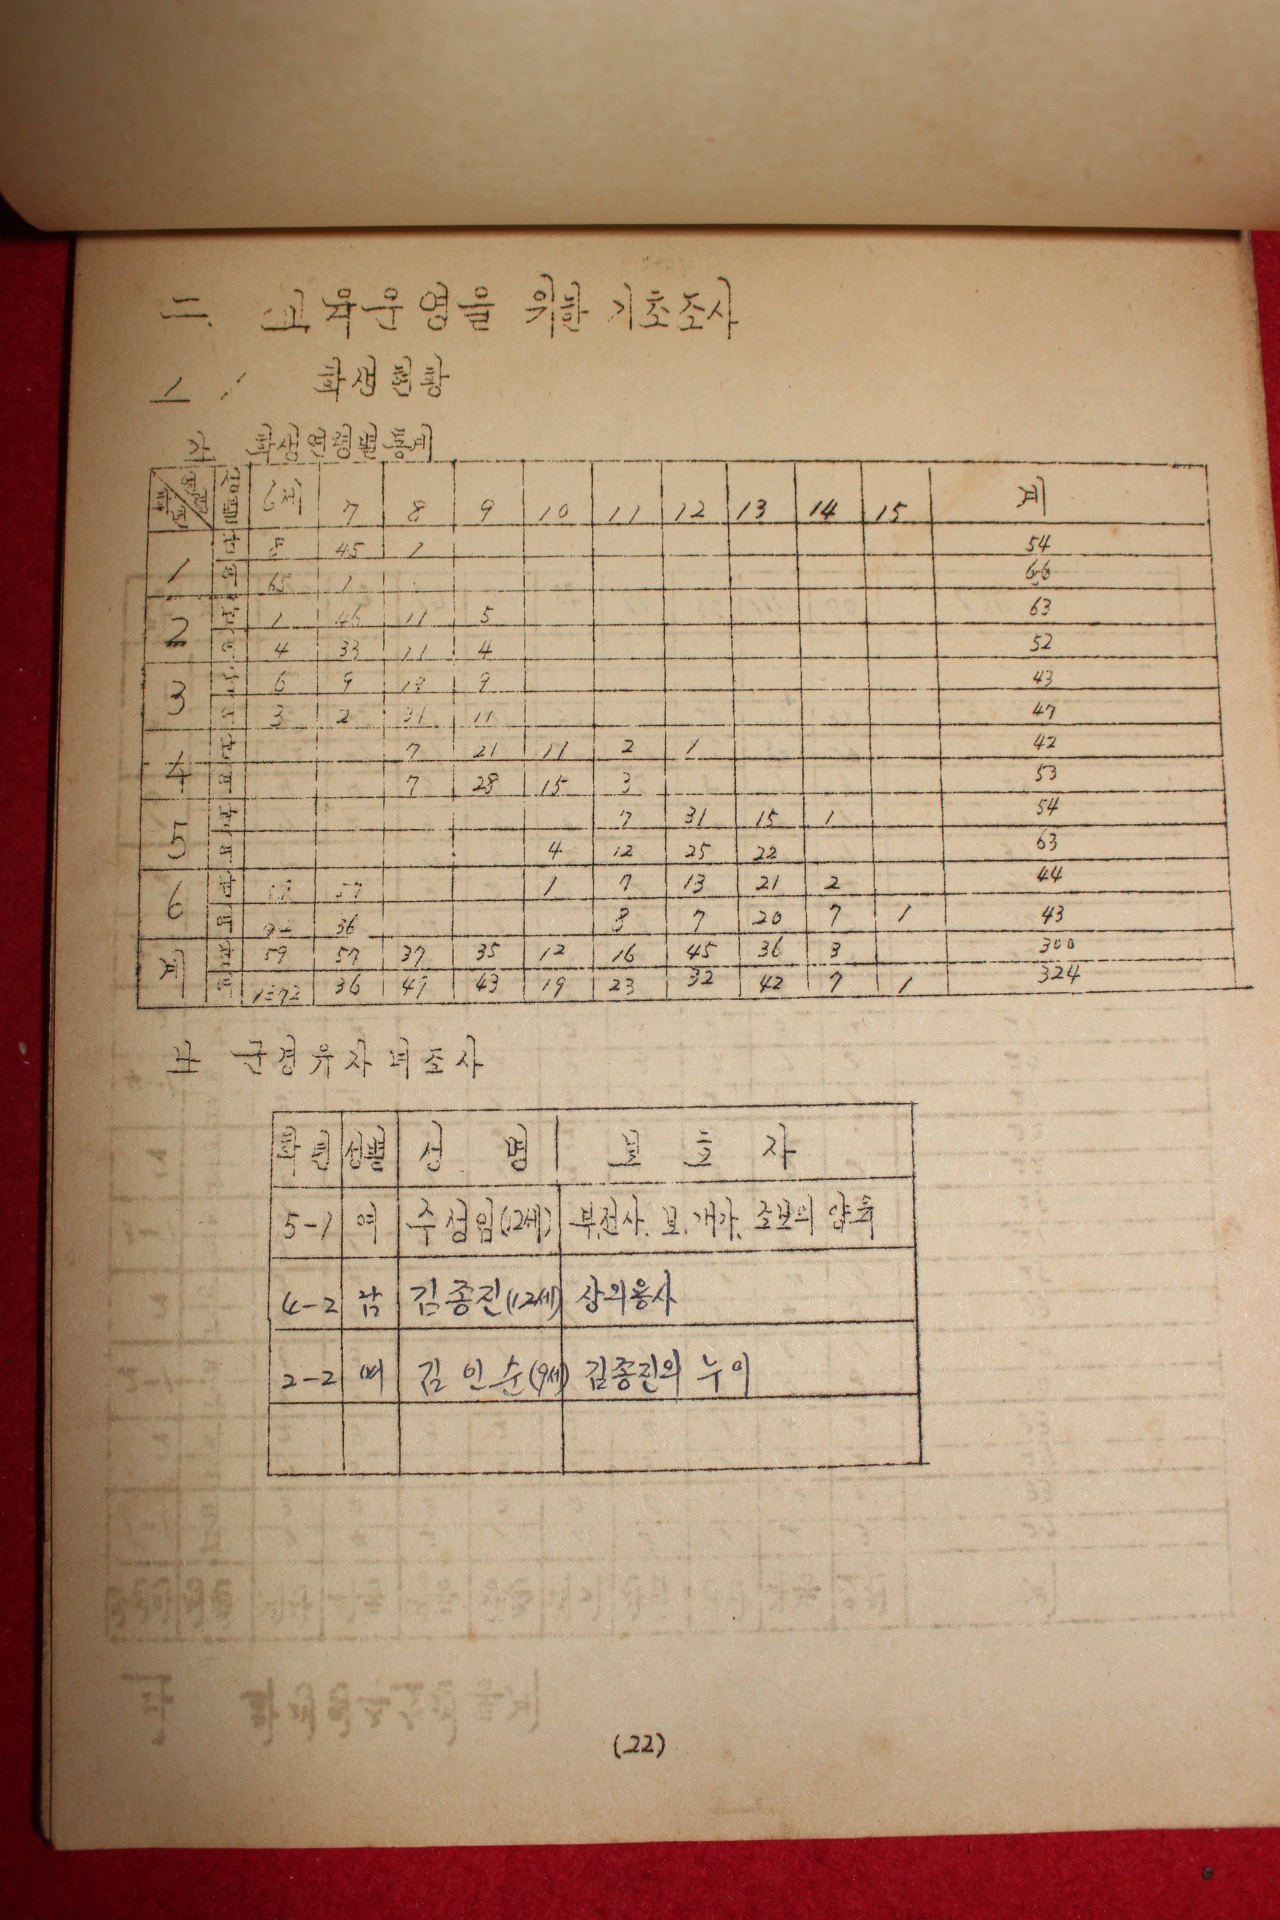 二. 교육운영을 위한 기초조사
1 학생현황
가 학생연령별통계
성별 6세 7 8 9 10 11 12 13 14 15 계
1 남 8 45 1 54
여 65 1 66
2 남 1 46 11 5 63
여 4 33 11 4 52
3 남 6 9 19 9 43
여 3 2 31 11 47
4 남 7 21 11 2 1 42
여 7 28 15 3 53
5 남 7 31 15 1 54
여 4 12 25 22 63
6 남 57 1 7 13 21 2 44
여 36 8 7 20 7 1 43
계 남 59 57 37 35 12 16 45 36 3 300
여 36 49 43 19 23 32 42 7 1 324
나 군경유자녀조사
학년 성별 성 명 보 호 자
5-1 여 주성임(12세) 부.전사. 모.개가. 조모의 양육
4-2 남 김종진(12세) 상의용사
2-2 여 김인순(9세) 김종진의 누이
(22)